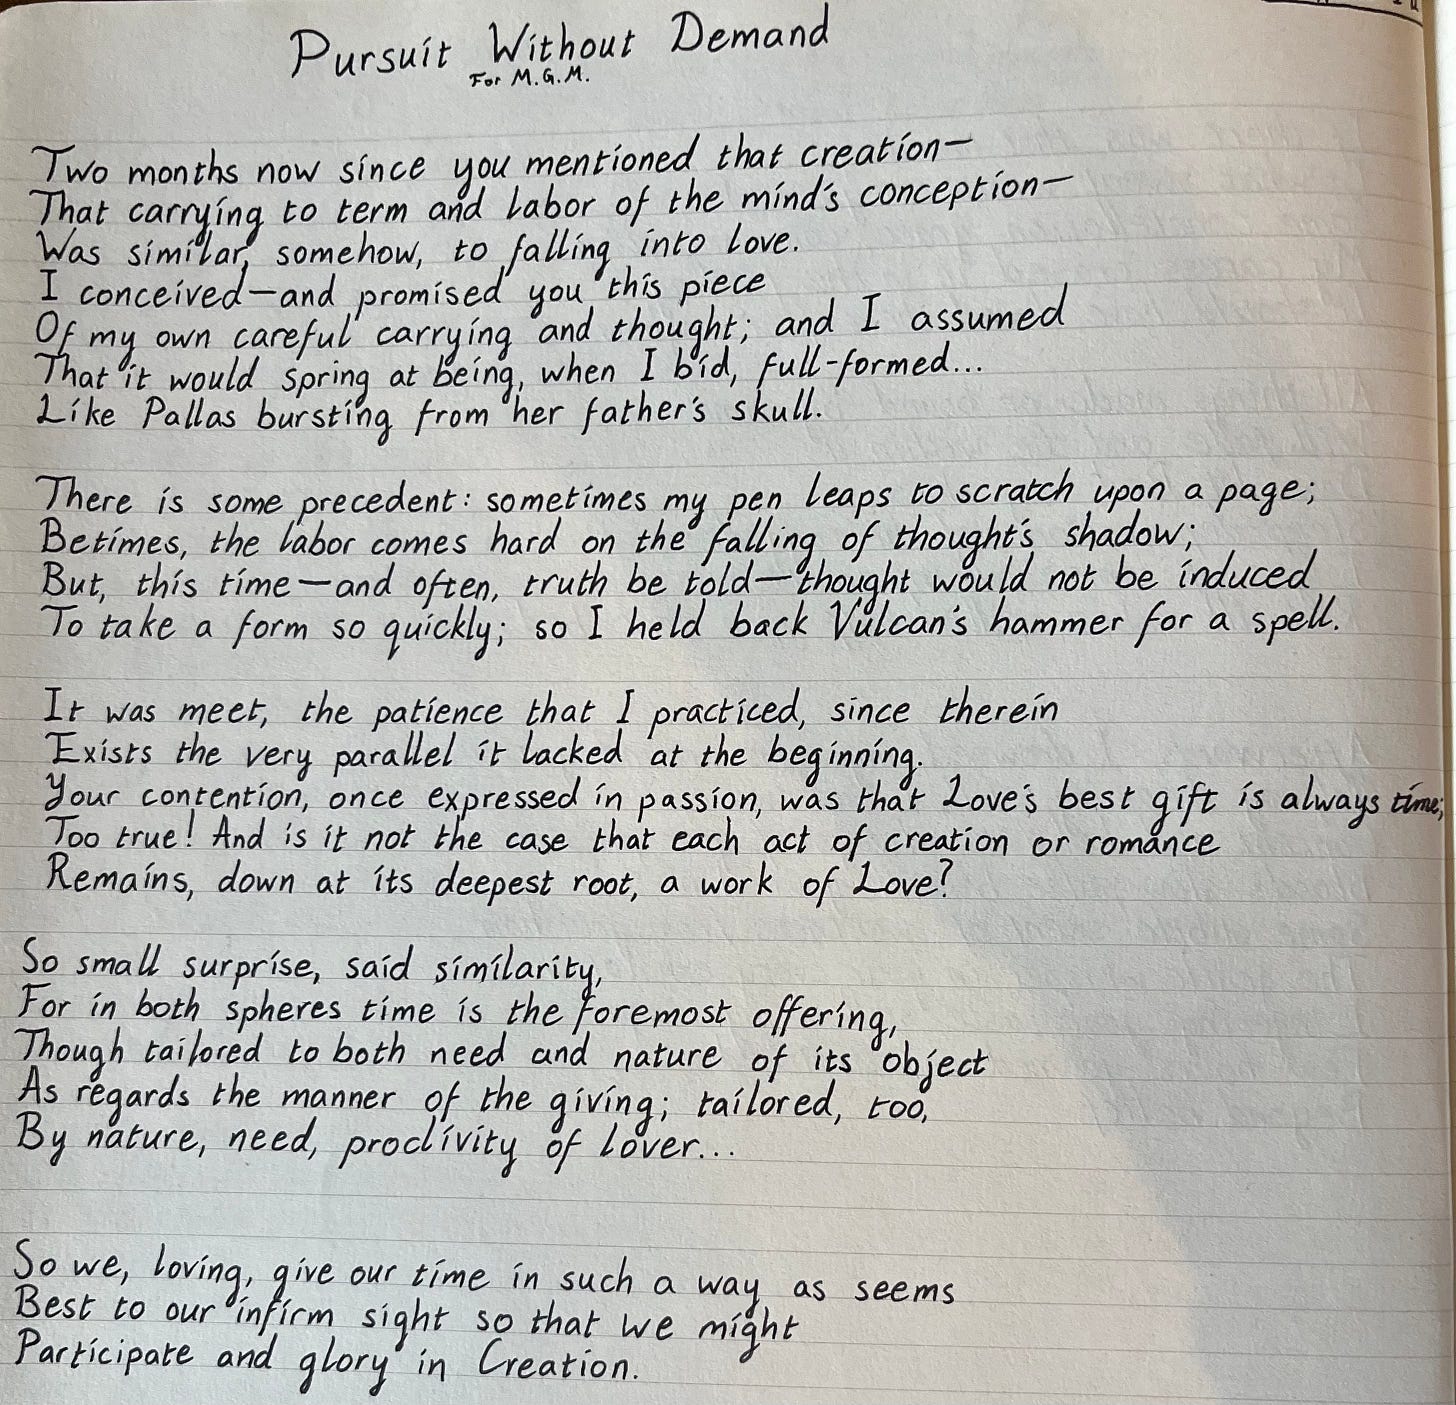 Pursuit Without Demand
For M.G.M.
Two months now since you mentioned that creation—
That carrying to term and labor of the mind's conception—
Was similar, somehow, to falling into love.
I conceived—and promised you this piece
Of my own careful carrying and thought; and I assumed
That it would spring at being, when I bid, full-formed...
Like Pallas bursting from her father's skull.
There is some precedent: sometimes my pen leaps to scratch upon a page;
Betimes, the labor comes hard on the falling of thought's shadow;
But, this time—and often, truth be told—thought would not be induced
To take a form so quickly; so I held back Vulcan's hammer for a spell.
It was meet, the patience that I practiced, since therein
Exists the very parallel it lacked at the beginning.
Your contention, once expressed in passion, was that Love's best gift is always time;
Too true! And is it not the case that each act of creation or romance
Remains, down at its deepest root, a work of Love?
So small surprise, said similarity,
For in both spheres time is the foremost offering,
Though tailored to both need and nature of its object
As regards the manner of the giving; tailored, too,
By nature, need, proclivity of lover...
So we, loving, give our time in such a way as seems
Best to our infirm sight so that we might
Participate and glory in Creation.